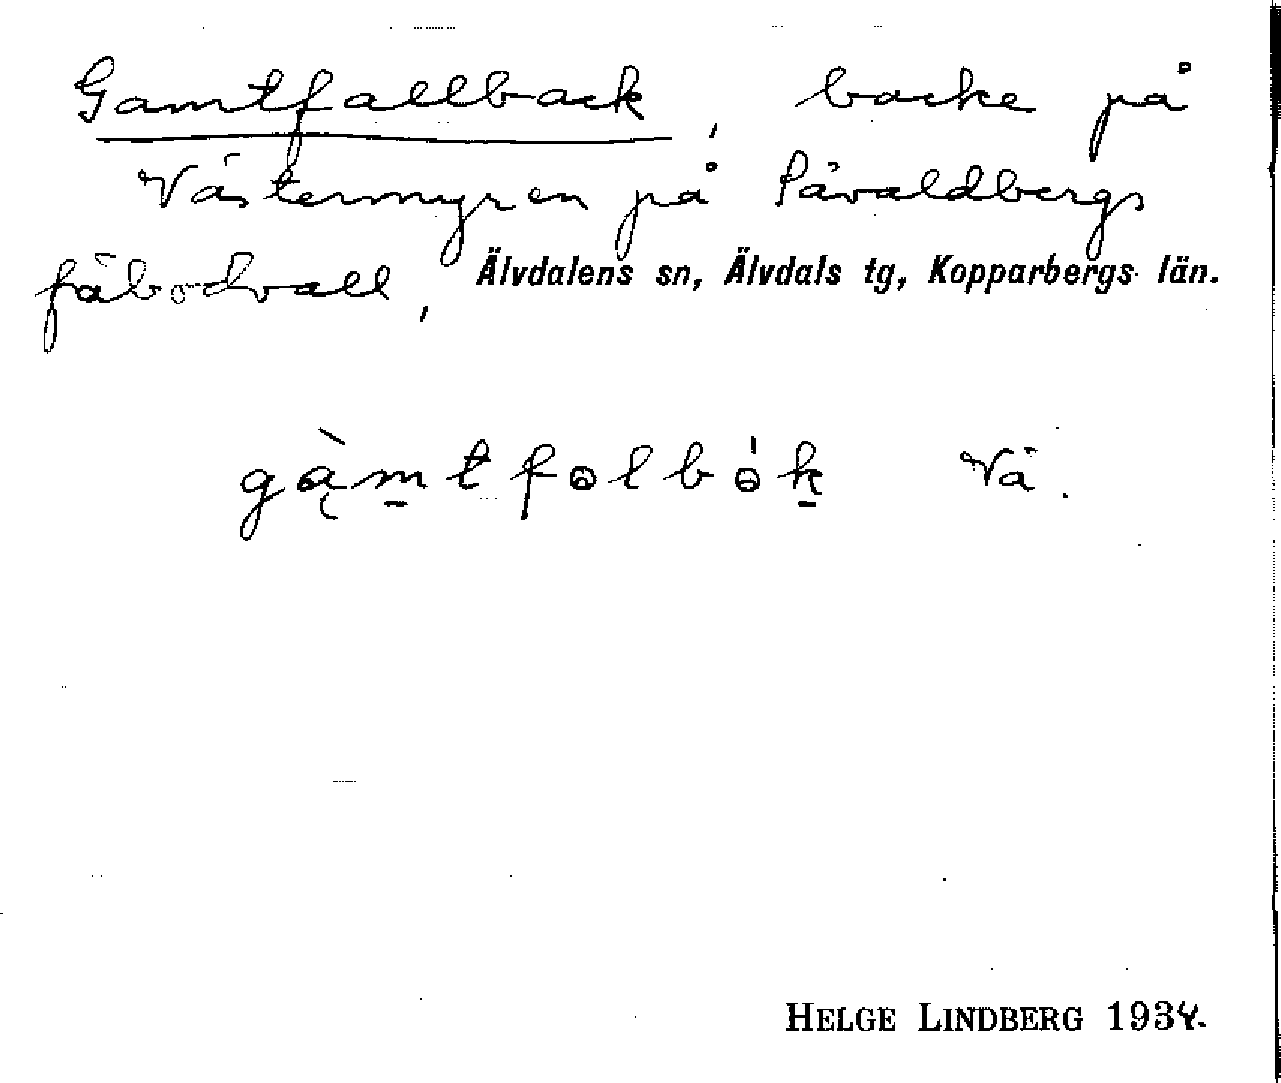 Gamtfallback, backe på
Västermyren på Pävaldbergs
fäbodvall, Älvdalens sn, Älvdals tg, Kopparbergs län.
gą̀m̲tfolbók̲ Vä.
HELGE LINDBERG 1934.